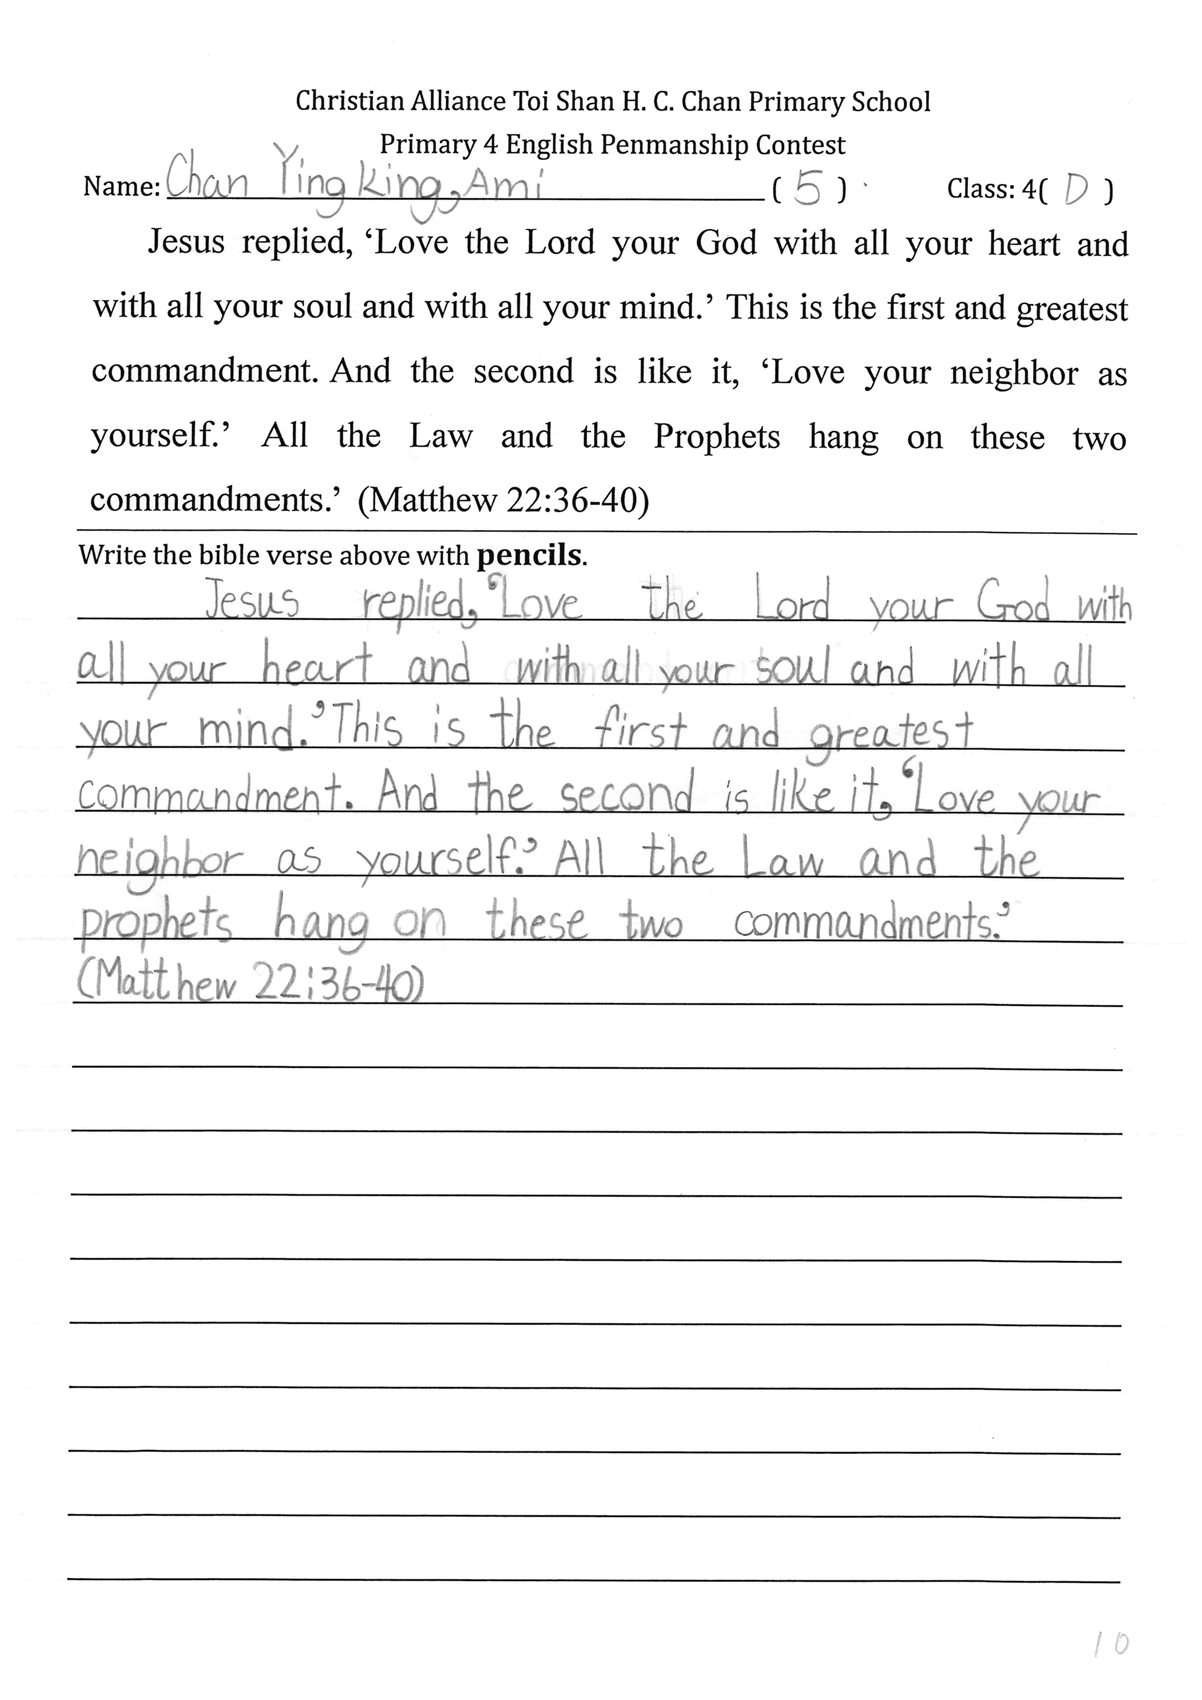 Christian Alliance Toi Shan H. C. Chan Primary School
Primary 4 English Penmanship Contest
Name: Chan Ying King, Ami ( 5 ) Class: 4( D )
Jesus replied, ‘Love the Lord your God with all your heart and
with all your soul and with all your mind.’ This is the first and greatest
commandment. And the second is like it, ‘Love your neighbor as
yourself.’ All the Law and the Prophets hang on these two
commandments.’ (Matthew 22:36-40)
Write the bible verse above with pencils.
Jesus replied, ‘Love the Lord your God with
all your heart and with all your soul and with all
your mind.’ This is the first and greatest
commandment. And the second is like it, ‘Love your
neighbor as yourself.’ All the Law and the
prophets hang on these two commandments.’
(Matthew 22:36-40)
10